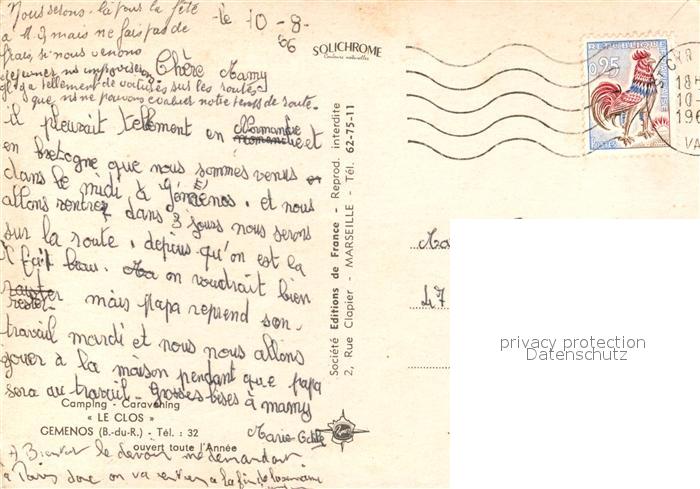 Nous serons là pour la fête
à M. mais ne fais pas de
frais, si nous venons
déjeuner ne improvisera
Il y a tellement de voitures sur les routes
que ns ne pouvons évaluer notre temps de route.
le 10-8-66
Chère Mamy
il pleuvait tellement en Normandie et
en bretagne que nous sommes venus
dans le midi à Gémenos. et nous
allons rentrer dans 3 jours nous serons
sur la route. depuis qu'on est la
il fait beau. on voudrait bien
rester mais papa reprend son
travail mardi et nous nous allons
jouer à la maison pendant que papa
sera au travail. Grosses bises à mamy
Marie-Odile
Camping - Caravaning
« LE CLOS »
GEMENOS (B.-du-R.) - Tél. : 32
ouvert toute l'Année
A Bientôt le devoir me demandant
à Paris donc on va rentrer à la fin de la semaine
Société Editions de France - Reprod. interdite
2, Rue Clapier - MARSEILLE - Tél. 62-75-11
SOLICHROME
Couleurs naturelles
REPUBLIQUE
FRANÇAISE
0,25
POSTES
18
10-
196
VA
Ma
47
privacy protection
Datenschutz